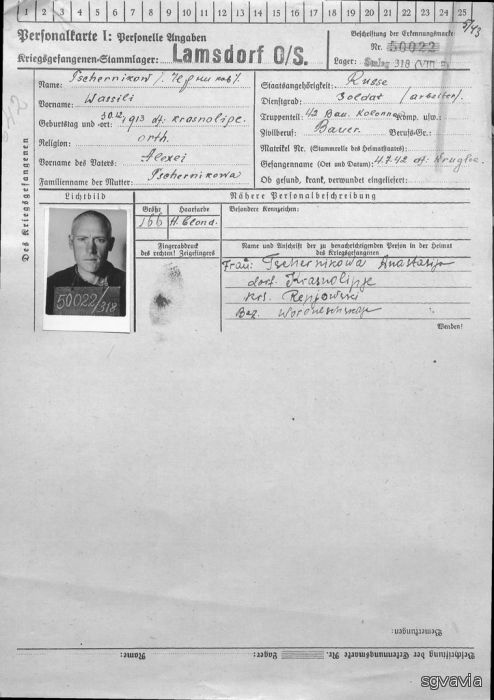 1 2 3 4 5 6 7 8 9 10 11 12 13 14 15 16 17 18 19 20 21 22 23 24 25
5/43
Personalkarte I: Personelle Angaben
Kriegsgefangenen-Stammlager: Lamsdorf O/S.
Beschriftung der Erkennungsmarke
Nr. 50022
Lager: Stalag 318 (VIII F)
Des Kriegsgefangenen
Name: Tschernikow /Черников/.
Vorname: Wassili
Geburtstag und -ort: 30.12.1913 df. Krasnolipe.
Religion: orth.
Vorname des Vaters: Alexei
Familienname der Mutter: Tschernikowa
Staatsangehörigkeit: Russe
Dienstgrad: Soldat /arbeiter/.
Truppenteil: 42 Bau. Kolonne Komp. usw.:
Zivilberuf: Bauer Berufs-Gr.:
Matrikel Nr. (Stammrolle des Heimatstaates):
Gefangennahme (Ort und Datum): 4.7.42 df. Krugloe.
Ob gesund, krank, verwundet eingeliefert:
Lichtbild
Nähere Personalbeschreibung
Größe
Haarfarbe
Besondere Kennzeichen:
166
H. blond.
50022/318
Fingerabdruck
des rechten! Zeigefingers
Name und Anschrift der zu benachrichtigenden Person in der Heimat
des Kriegsgefangenen
Frau: Tschernikowa Anastasija
dorf. Krasnolipje
Krs. Repjowski
Bez.
Wenden!
Bemerkungen:
Beschriftung der Erkennungsmarke Nr. Lager: Name:
sgvavia